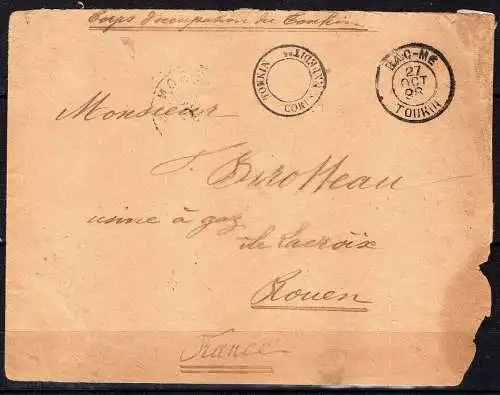 Corps d'occupation du Tonkin
TONKIN CORPS
BAO-ME
27
OCT
TONKIN
Monsieur
Birotteau
usine à gaz
ile Lacroix
Rouen
France